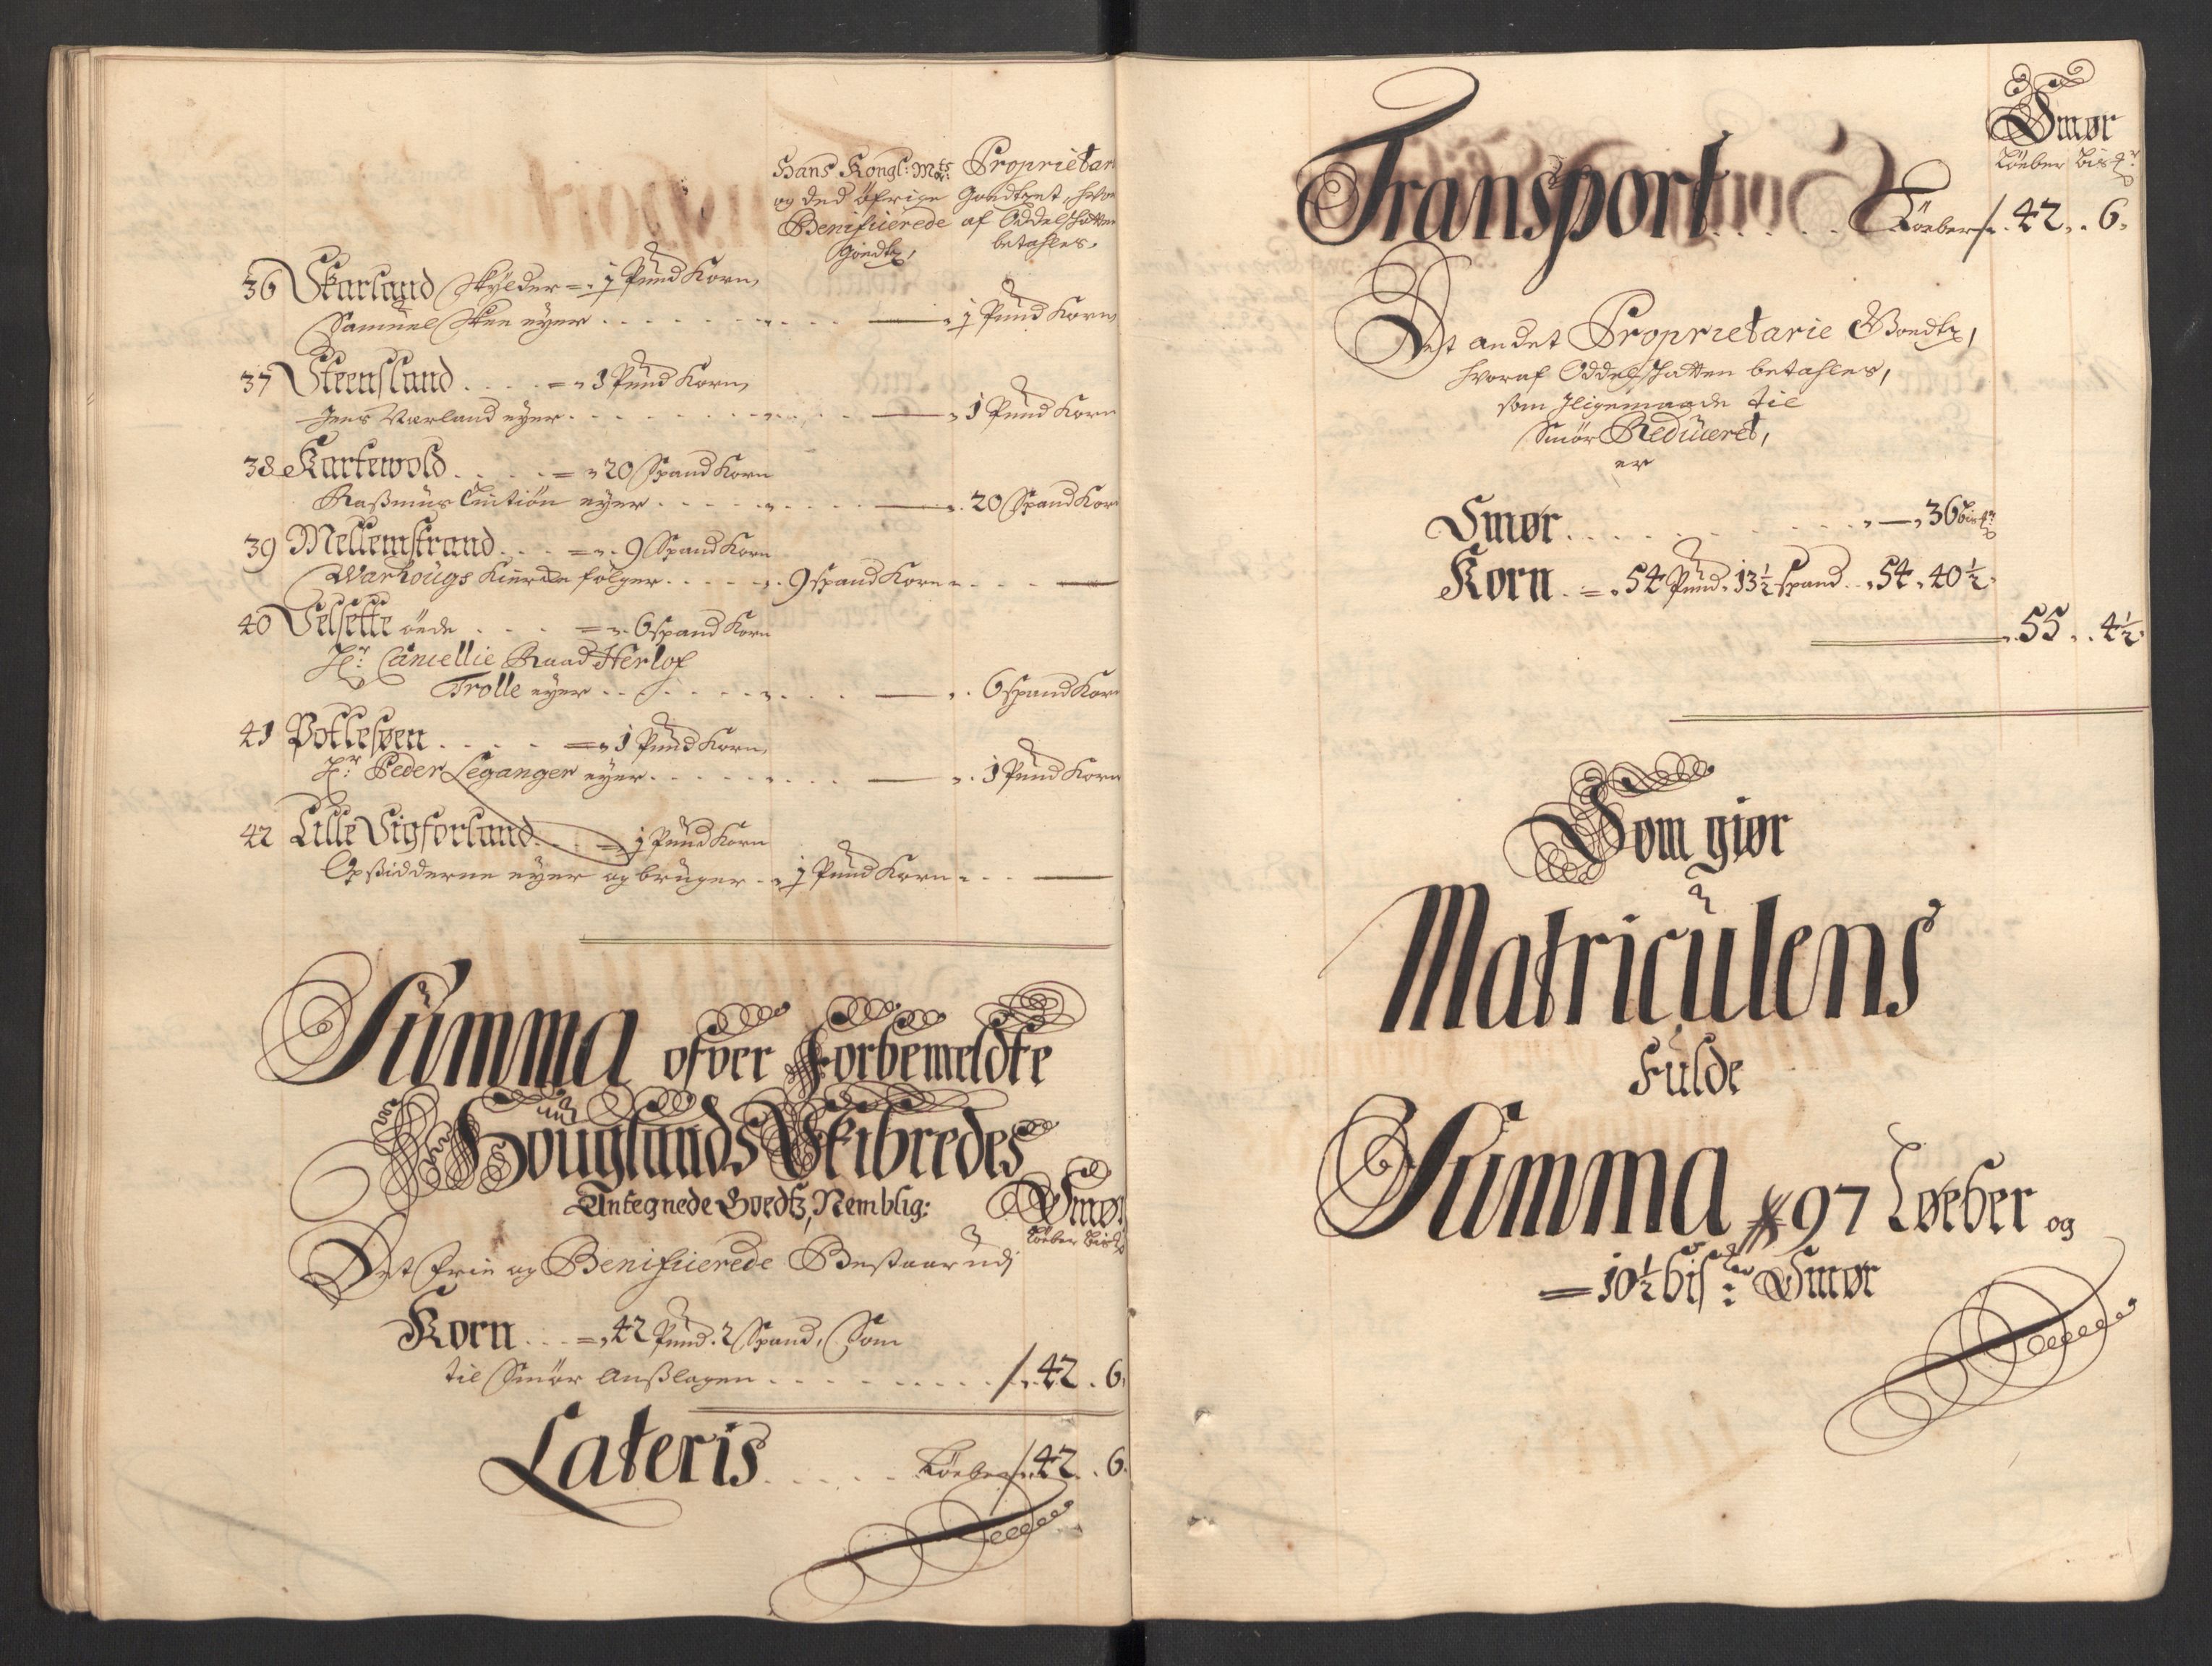 Hans Kongl: Mtz
og ded öfrige
Benificerede
Goedtz,
Proprietar
Goedtzet, hvor
af Oddelskatten
betahles.
36 Skarland Skylder = 1 Pund Korn
Samuel Skee eyer . . . — 1 Pund Korn
37 Steensland . . . . = 1 Pund Korn
Jens Værland eyer . . . — 1 Pund Korn
38 Kartewold . . . . = 20 Spand Korn
Raßmus eyer . . . — 20 Spand Korn
39 Mellemstrand . . . = 9 Spand Korn
Warhougs Kircke følger . . . 9 spand Korn . . . —
40 Selsette öede . . . = 6 spand Korn
Hr: Cancellie Raad Herlof
Trolle eyer . . . — 6 spand Korn
41 Potlesøen . . . . = 1 Pund Korn
Hr: Peder Leganger eyer . . . — 1 Pund Korn
42 Lille Sigforland . . . = 1 Pund Korn
Opsidderne eyer og bruger . . 1 Pund Korn . . . —
Summa ofver Forbemeldte
Höuglands Skibredes
Antegnede Goedtz, Nemblig:
Smør
Löeber Bisd
Det frie og Benificerede Bestaar udj
Korn . . . = 42 Pund. 2 Spand, Som
til Smör Anßlagen . . . 42 . 6.
Lateris . . . . . Löeber 42 . . 6.
Smør
Löeber Bisd
Transport . . . . . Löeber 42 . . 6.
Det andet Proprietarie Goedtz,
hvoraf Oddelskatten betahles,
som Iligemaade til
Smör Reduceret,
er
Smør . . . . . — 36 bisd
Korn . = 54 Pund. 13½ spand . . 54 . 40½.
55 . . 4½.
Som giør
Matriculens
Fulde
Summa 97 Løeber og
= 10½ bis: Smør